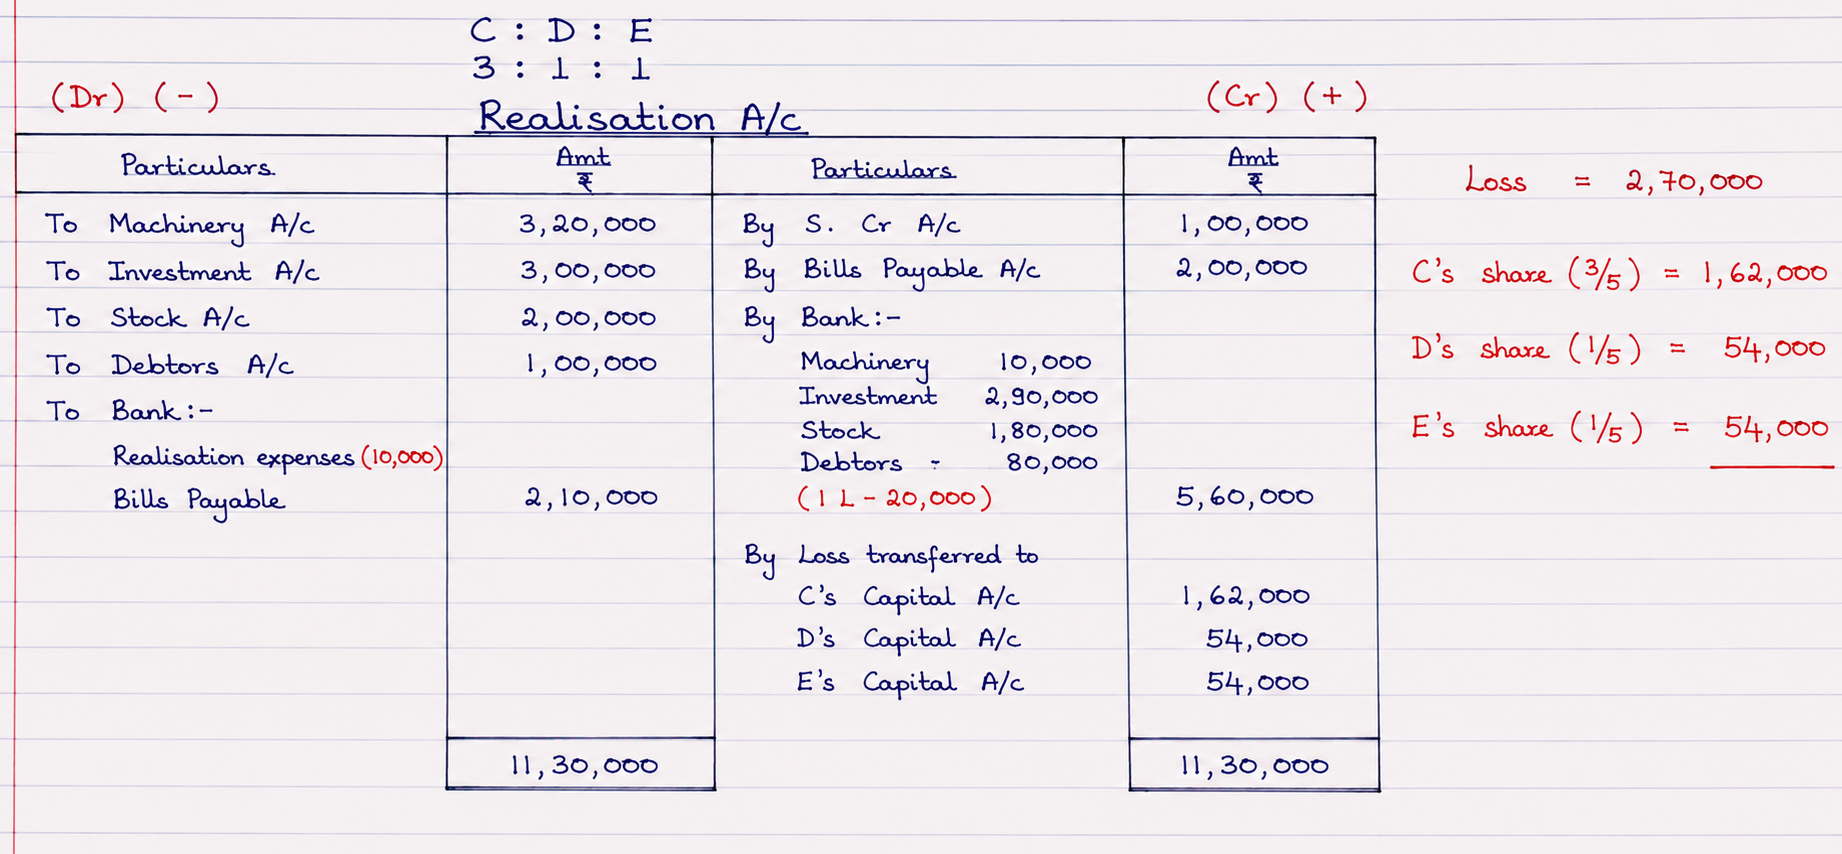 C : D : E
3 : 1 : 1
(Dr) (-)
(Cr) (+)
Realisation A/c
Particulars Amt ₹ Particulars Amt ₹
To Machinery A/c 3,20,000 By S. Cr A/c 1,00,000
To Investment A/c 3,00,000 By Bills Payable A/c 2,00,000
To Stock A/c 2,00,000 By Bank:-
To Debtors A/c 1,00,000 Machinery 10,000
To Bank:- Investment 2,90,000
Stock 1,80,000
Realisation expenses (10,000) Debtors - 80,000
Bills Payable 2,10,000 (1 L - 20,000) 5,60,000
By Loss transferred to
C's Capital A/c 1,62,000
D's Capital A/c 54,000
E's Capital A/c 54,000
11,30,000 11,30,000
Loss = 2,70,000
C's share (3/5) = 1,62,000
D's share (1/5) = 54,000
E's share (1/5) = 54,000